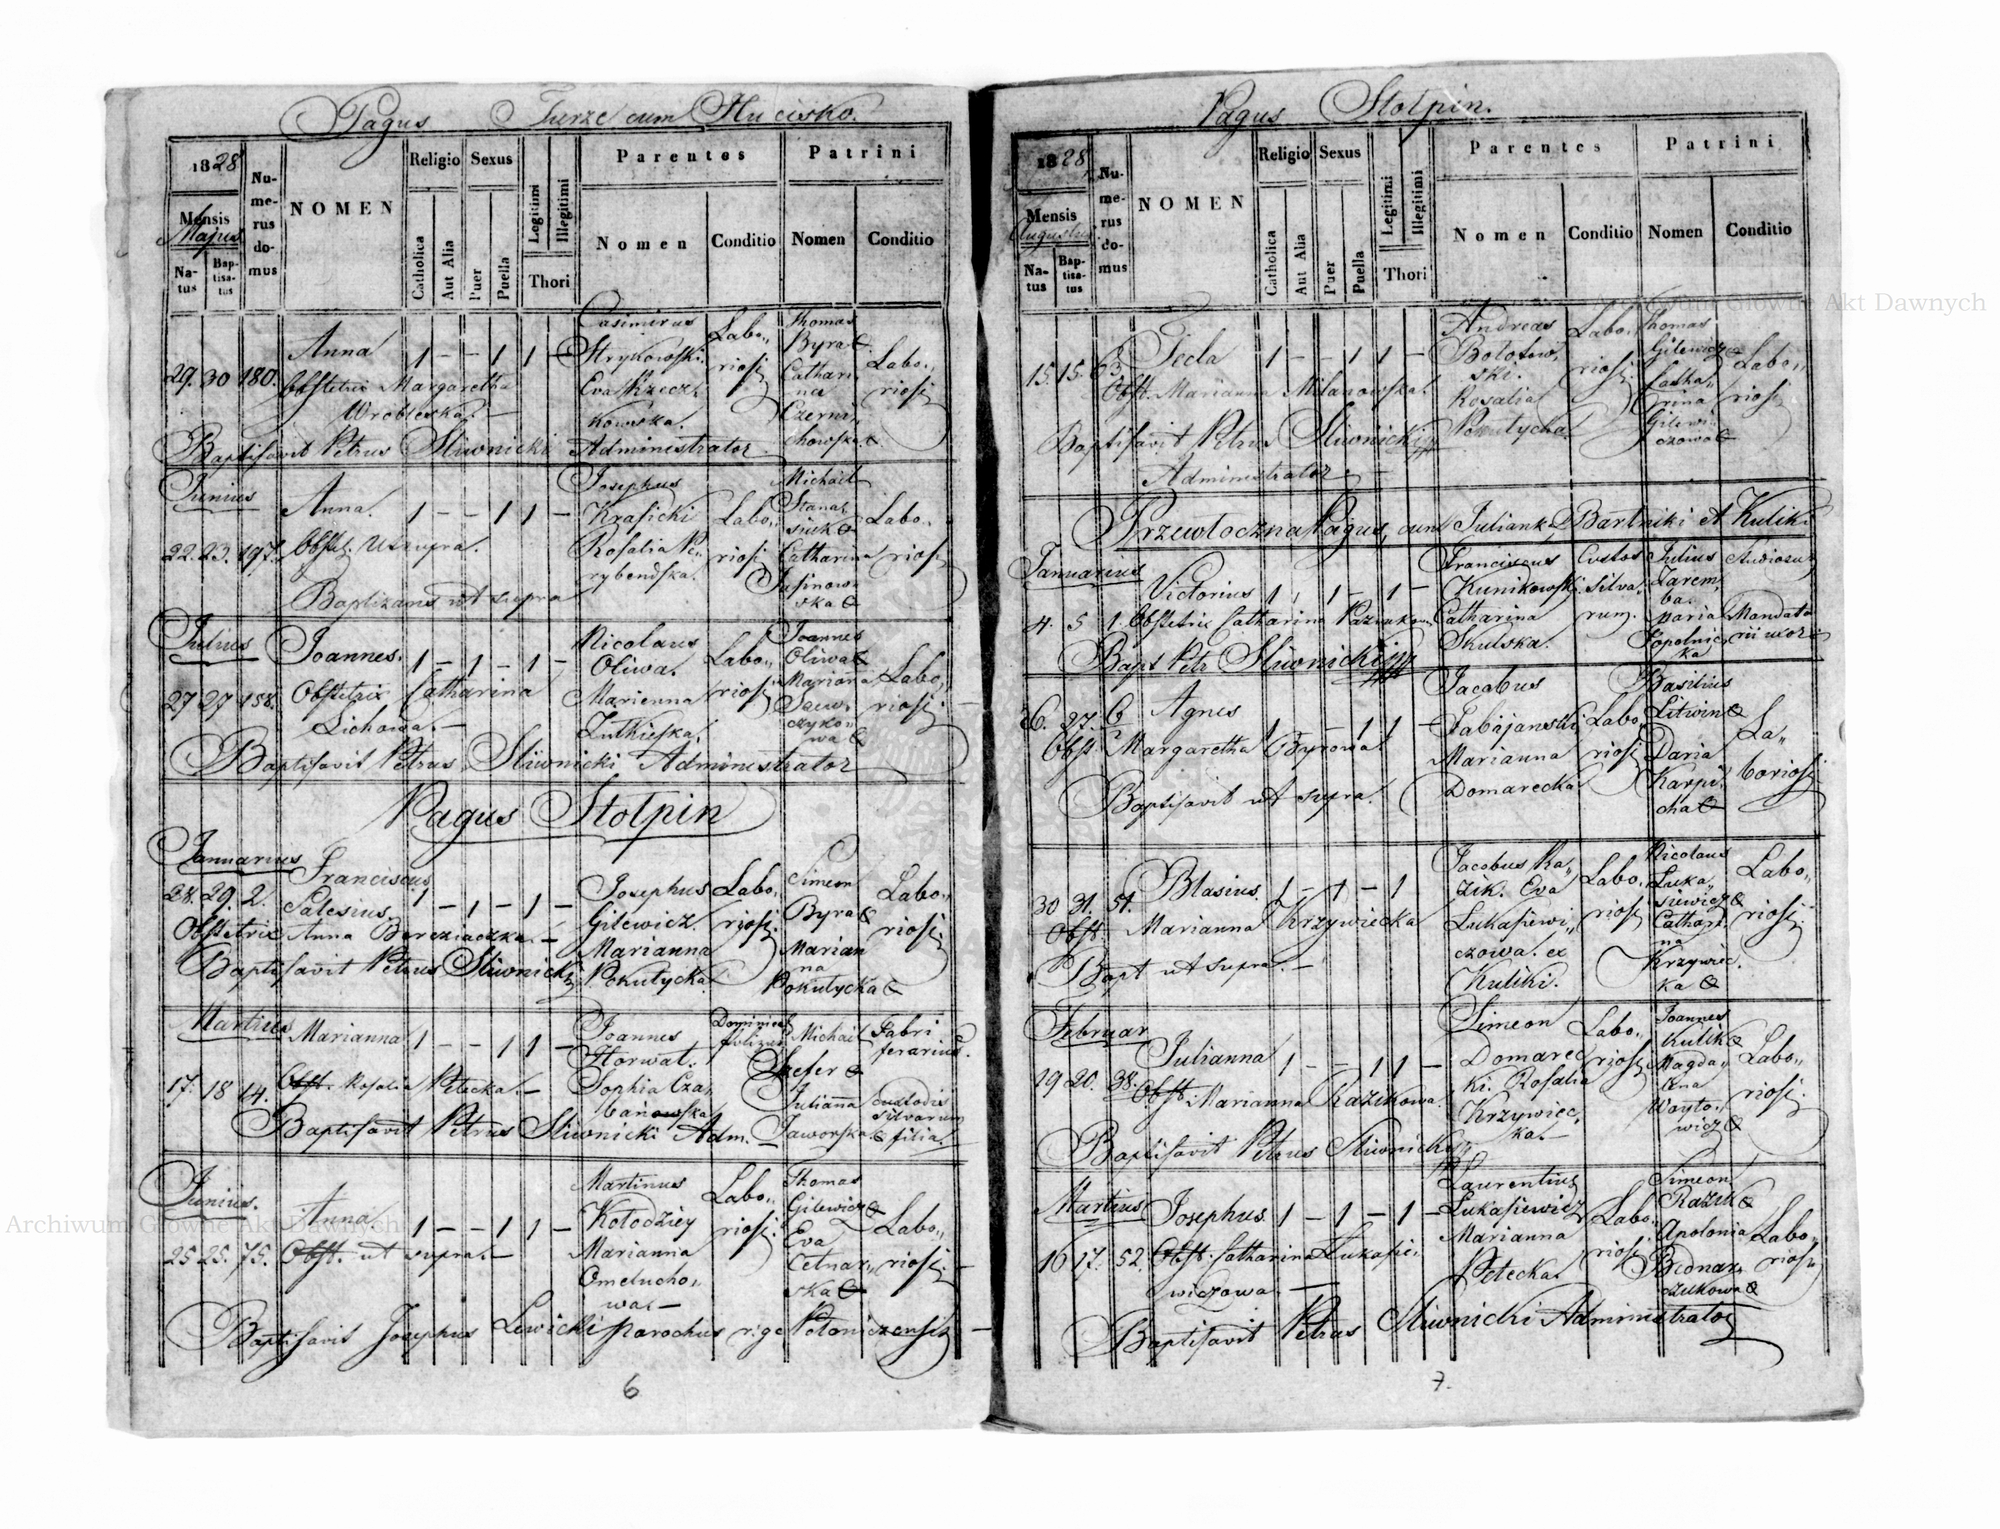 Pagus Turze cum Hucisko.
1828
Mensis
Majus
Natus
Baptisatus
Numerus domus
NOMEN
Religio
Catholica
Aut Alia
Sexus
Puer
Puella
Legitimi
Illegitimi
Thori
Parentes
Nomen
Conditio
Patrini
Nomen
Conditio
29. 30 180.
Anna
Obstetrix Margaretha
Wróbleska.
1 – – 1 1 –
Casimirus
Strykowski.
Eva Rzecz
kowska.
Labo„
riosi
Thomas
Byra
Cathari
na
Czerni
chowska.
Labo„
riosi
Baptisavit Petrus Sliwnicki Administrator
Junius
22. 23. 197.
Anna.
Obst. Ut supra.
1 – – 1 1 –
Josephus
Krasicki
Rosalia Pe„
rybendska.
Labo„
riosi
Michael
Catharina
Labo„
riosi
Baptizans ut supra
Julius
27 27 158.
Joannes.
Obstetrix Catharina
Lichowa.
1 – 1 – 1 –
Nicolaus
Oliwa.
Marianna
Zutkieska.
Labo„
riosi
Joannes
Oliwa
Marianna
Labo„
riosi
Baptisavit Petrus Sliwnicki Administrator
Pagus Stolpin
Januarius
28. 29. 2.
Franciscus
Salesius
Obstetrix Anna Bereziaczka.
1 – 1 – 1 –
Josephus
Gilewicz.
Marianna
Pokutycka
Labo„
riosi.
Simeon
Byra
Marian
na
Pokutycka
Labo„
riosi.
Baptisavit Petrus Sliwnicki
Martius
17. 18 14.
Marianna
Obst. Rosalia Petecka.
1 – – 1 1 –
Joannes
Horwat.
Sophia Cza
banowska
Michael
Szefer
Julianna
Jaworska.
Fabri
ferarius.
custodis
silvarum
filia.
Baptisavit Petrus Sliwnicki Adm.
Junius.
25 25. 75.
Anna
Obst. ut supra.
1 – – 1 1 –
Martinus
Kołodziey
Marianna
Omelucho„
wa.
Labo„
riosi.
Thomas
Gilewicz
Eva
Cetnar„
ska
Labo„
riosi.
Baptisavit Josephus Lewicki Parochus
6
Pagus Stolpin.
1828
Mensis
Augustus
Natus
Baptisatus
Numerus domus
NOMEN
Religio
Catholica
Aut Alia
Sexus
Puer
Puella
Legitimi
Illegitimi
Thori
Parentes
Nomen
Conditio
Patrini
Nomen
Conditio
15. 15. 63.
Tecla
Obst. Marianna Milanowska.
1 – – 1 1 –
Andreas
Rosalia
Pokutycha.
Labo„
riosi.
Thomas
Gilewicz
Catha„
rina
Gilewi
czowa
Labo„
riosi
Baptisavit Petrus Sliwnicki
Administrator.
Przewłoczna Pagus, cum Julianka, Bartniki et Kuliki
Januarius
4. 5 1.
Victorius
Obstetrix Catharina
Franciscus
Kunikowski.
Catharina
Skulska.
Custos
Silva„
rum.
Julius
Zarem
ba.
Maria
Topolnic
ka
Mandata
rii uxor
Bapt Petr Sliwnicki
26. 27. 6
Agnes
Obst. Margaretha Byrowa.
1 – – 1 1 –
Jacobus
Fabijanski
Marianna
Domarecka.
Labo„
riosi
Basilius
Litwin
Daria
Karpi
cha
La„
boriosi
Baptisavit ut supra.
30 31. 51.
Blasius.
Obst. Marianna Krzywiecka
1 – 1 – 1
Jacobus Ra„
zik. Eva
Lukasiewi„
czowa. ex
Kuliki.
Labo„
riosi
Nicolaus
Luka„
siewicz
Cathari
na
Krzywiec.
ka
Labo„
riosi.
Bapt ut supra.
Februar
19 20. 38.
Julianna
Obst. Marianna Razikowa.
1 – – 1 1 –
Simeon
Domarec
ki. Rosalia
Krzywiec„
ka.
Labo„
riosi
Joannes
Kulik
Magda„
lena
Woyto„
wicz
Labo„
riosi.
Baptisavit Petrus Sliwnicki
Martius
16 17. 52.
Josephus
Obst. Catharina Lukasie„
wiczowa.
1 – 1 – 1 –
Laurentius
Lukasiewicz
Marianna
Petecka.
Labo„
riosi
Simeon
Razik
Apolonia
Bednar„
czukowa
Labo„
riosi
Baptisavit Petrus Sliwnicki Administrator
7.
Archiwum Główne Akt Dawnych
Archiwum Główne Akt Dawnych